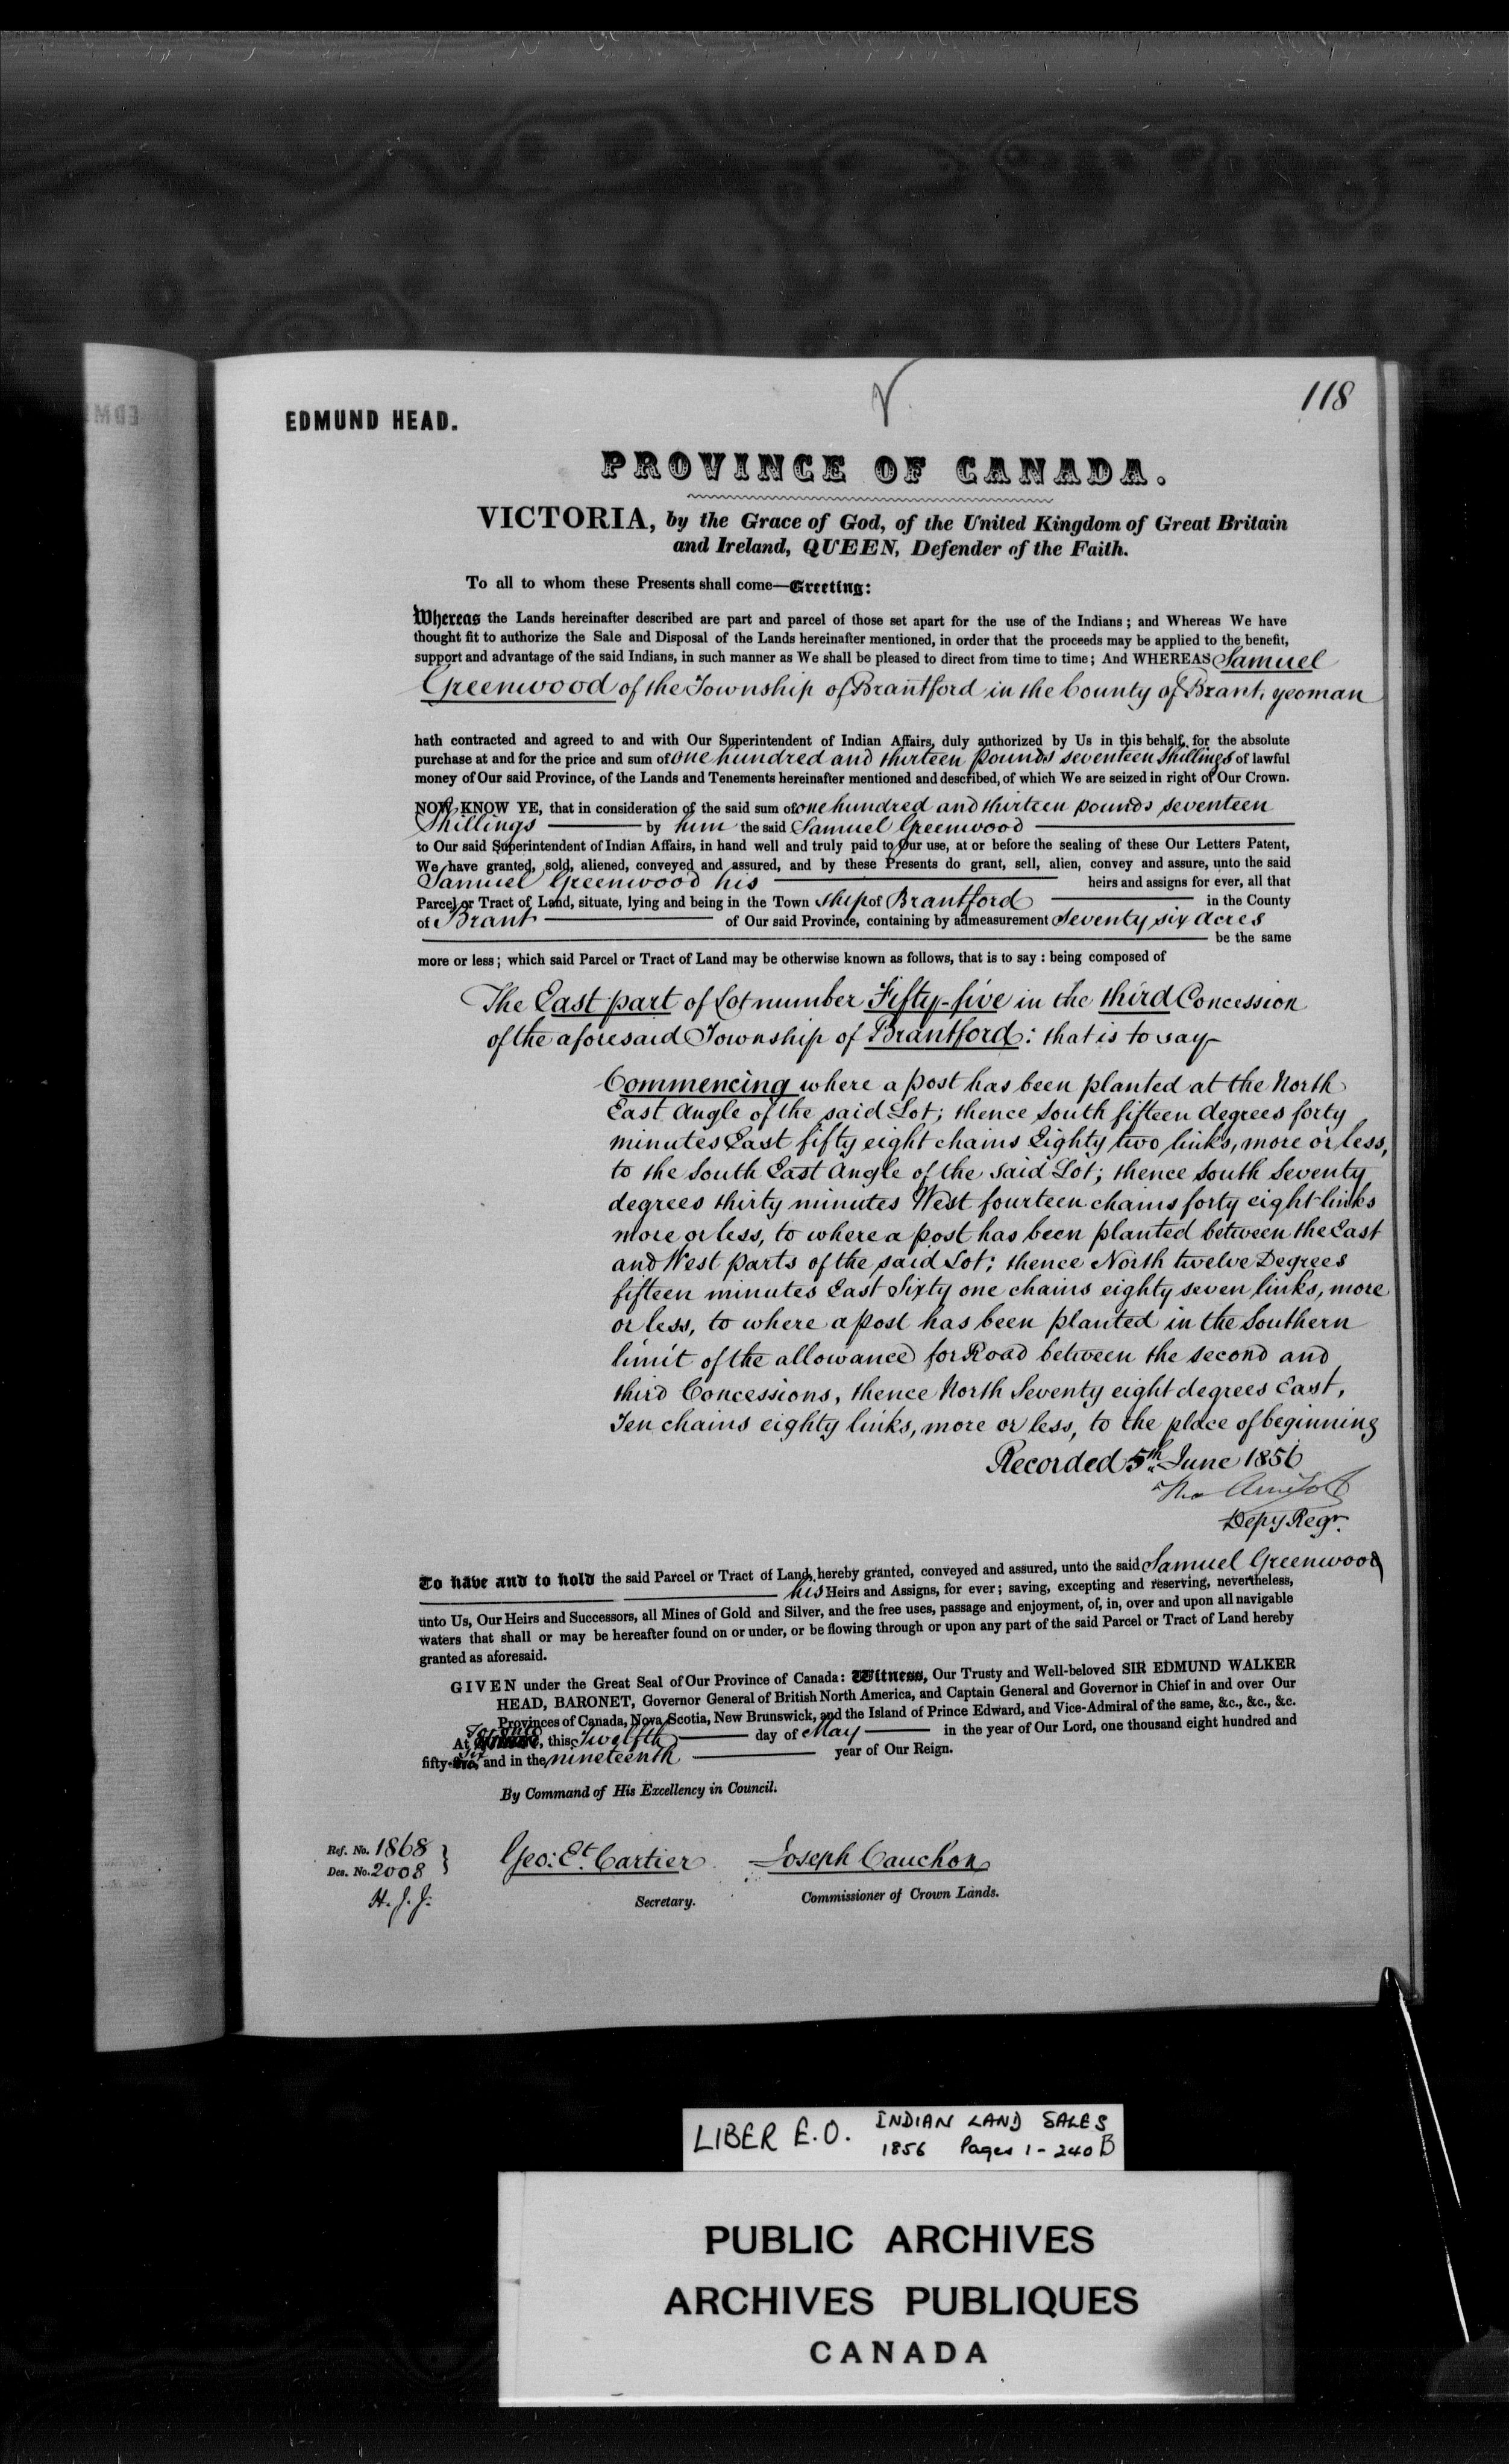 118
EDMUND HEAD.
PROVINCE OF CANADA.
VICTORIA, by the Grace of God, of the United Kingdom of Great Britain
and Ireland, QUEEN, Defender of the Faith.
To all to whom these Presents shall come—Greeting:
Whereas the Lands hereinafter described are part and parcel of those set apart for the use of the Indians; and Whereas We have
thought fit to authorize the Sale and Disposal of the Lands hereinafter mentioned, in order that the proceeds may be applied to the benefit,
support and advantage of the said Indians, in such manner as We shall be pleased to direct from time to time; And WHEREAS Samuel
Greenwood of the Township of Brantford in the County of Brant, yeoman
hath contracted and agreed to and with Our Superintendent of Indian Affairs, duly authorized by Us in this behalf, for the absolute
purchase at and for the price and sum of one hundred and thirteen pounds seventeen shillings of lawful
money of Our said Province, of the Lands and Tenements hereinafter mentioned and described, of which We are seized in right of Our Crown.
NOW KNOW YE, that in consideration of the said sum of one hundred and thirteen pounds seventeen
Shillings by him the said Samuel Greenwood
to Our said Superintendent of Indian Affairs, in hand well and truly paid to Our use, at or before the sealing of these Our Letters Patent,
We have granted, sold, aliened, conveyed and assured, and by these Presents do grant, sell, alien, convey and assure, unto the said
Samuel Greenwood his heirs and assigns for ever, all that
Parcel or Tract of Land, situate, lying and being in the Town ship of Brantford in the County
of Brant of Our said Province, containing by admeasurement Seventy six acres
be the same
more or less; which said Parcel or Tract of Land may be otherwise known as follows, that is to say: being composed of
The East part of Lot number Fifty-five in the third Concession
of the aforesaid Township of Brantford: that is to say
Commencing where a post has been planted at the North
East Angle of the said Lot; thence South fifteen degrees forty
minutes East fifty eight chains Eighty two links, more or less,
to the South East Angle of the said Lot; thence South Seventy
degrees thirty minutes West fourteen chains forty eight links
more or less, to where a post has been planted between the East
and West parts of the said Lot; thence North twelve Degrees
fifteen minutes East Sixty one chains eighty seven links, more
or less, to where a post has been planted in the Southern
limit of the allowance for Road between the second and
third Concessions, thence North Seventy eight degrees East,
Ten chains eighty links, more or less, to the place of beginning
Recorded 5th June 1856
Depy Regr.
To have and to hold the said Parcel or Tract of Land, hereby granted, conveyed and assured, unto the said Samuel Greenwood
his Heirs and Assigns, for ever; saving, excepting and reserving, nevertheless,
unto Us, Our Heirs and Successors, all Mines of Gold and Silver, and the free uses, passage and enjoyment, of, in, over and upon all navigable
waters that shall or may be hereafter found on or under, or be flowing through or upon any part of the said Parcel or Tract of Land hereby
granted as aforesaid.
GIVEN under the Great Seal of Our Province of Canada: Witness, Our Trusty and Well-beloved SIR EDMUND WALKER
HEAD, BARONET, Governor General of British North America, and Captain General and Governor in Chief in and over Our
Provinces of Canada, Nova Scotia, New Brunswick, and the Island of Prince Edward, and Vice-Admiral of the same, &c., &c., &c.
At Toronto, this Twelfth day of May in the year of Our Lord, one thousand eight hundred and
fifty-six and in the nineteenth year of Our Reign.
By Command of His Excellency in Council.
Ref. No. 1868
Des. No. 2008
H. J. J.
Geo: Et. Cartier Joseph Cauchon
Secretary. Commissioner of Crown Lands.
LIBER E.O. INDIAN LAND SALES
1856 Pages 1-240B
PUBLIC ARCHIVES
ARCHIVES PUBLIQUES
CANADA